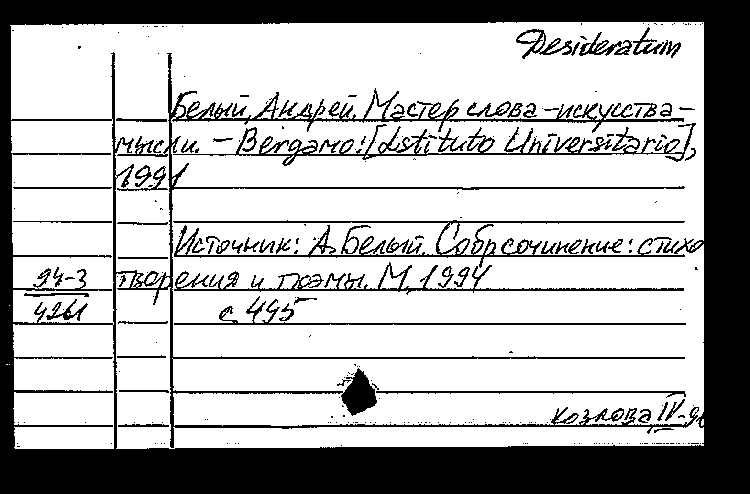 Desideratum
Белый, Андрей. Мастер слова-искусства-
мысли. - Bergamo: [Istituto Universitario],
1991
Источник: А. Белый. Собр сочинение: стихо
94-3 творения и поэмы. М, 1994
4261 с. 495
козлова IV-